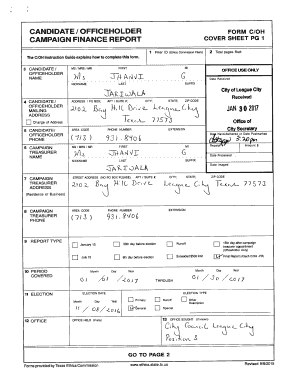 CANDIDATE / OFFICEHOLDER FORM C/OH
CAMPAIGN FINANCE REPORT COVER SHEET PG 1
The C/OH Instruction Guide explains how to complete this form.
1 Filer ID (Ethics Commission Filers)
2 Total pages filed:
3 CANDIDATE / OFFICEHOLDER NAME
MS / MRS / MR FIRST MI
Ms JHANVI G
NICKNAME LAST SUFFIX
JARIWALA
OFFICE USE ONLY
City of League City
Received
JAN 30 2017
Office of
City Secretary
3:20pm
4 CANDIDATE / OFFICEHOLDER MAILING ADDRESS
Change of Address
ADDRESS / PO BOX; APT / SUITE #; CITY; STATE; ZIP CODE
2102 Bay Hill Drive League City
Texas 77573
5 CANDIDATE / OFFICEHOLDER PHONE
AREA CODE PHONE NUMBER EXTENSION
(713) 931-8406
Date Hand-delivered or Date Postmarked
Receipt # Amount $
Date Processed
Date Imaged
6 CAMPAIGN TREASURER NAME
MS / MRS / MR FIRST MI
Ms JHANVI G
NICKNAME LAST SUFFIX
JARIWALA
7 CAMPAIGN TREASURER ADDRESS
(Residence or Business)
STREET ADDRESS (NO PO BOX PLEASE); APT / SUITE #; CITY; STATE; ZIP CODE
2102 Bay Hill Drive League City
Texas 77573
8 CAMPAIGN TREASURER PHONE
AREA CODE PHONE NUMBER EXTENSION
(713) 931-8406
9 REPORT TYPE
January 15 30th day before election Runoff 15th day after campaign treasurer appointment (Officeholder Only)
July 15 8th day before election Exceeded $500 limit Final Report (Attach C/OH - FR)
10 PERIOD COVERED
Month Day Year Month Day Year
01/01/2017 THROUGH 01/30/2017
11 ELECTION
ELECTION DATE ELECTION TYPE
Month Day Year
11/08/2016
Primary Runoff Other Description
General Special
12 OFFICE
OFFICE HELD (if any)
13 OFFICE SOUGHT (if known)
City Council League City
Position 3
GO TO PAGE 2
Forms provided by Texas Ethics Commission www.ethics.state.tx.us Revised 9/8/2015